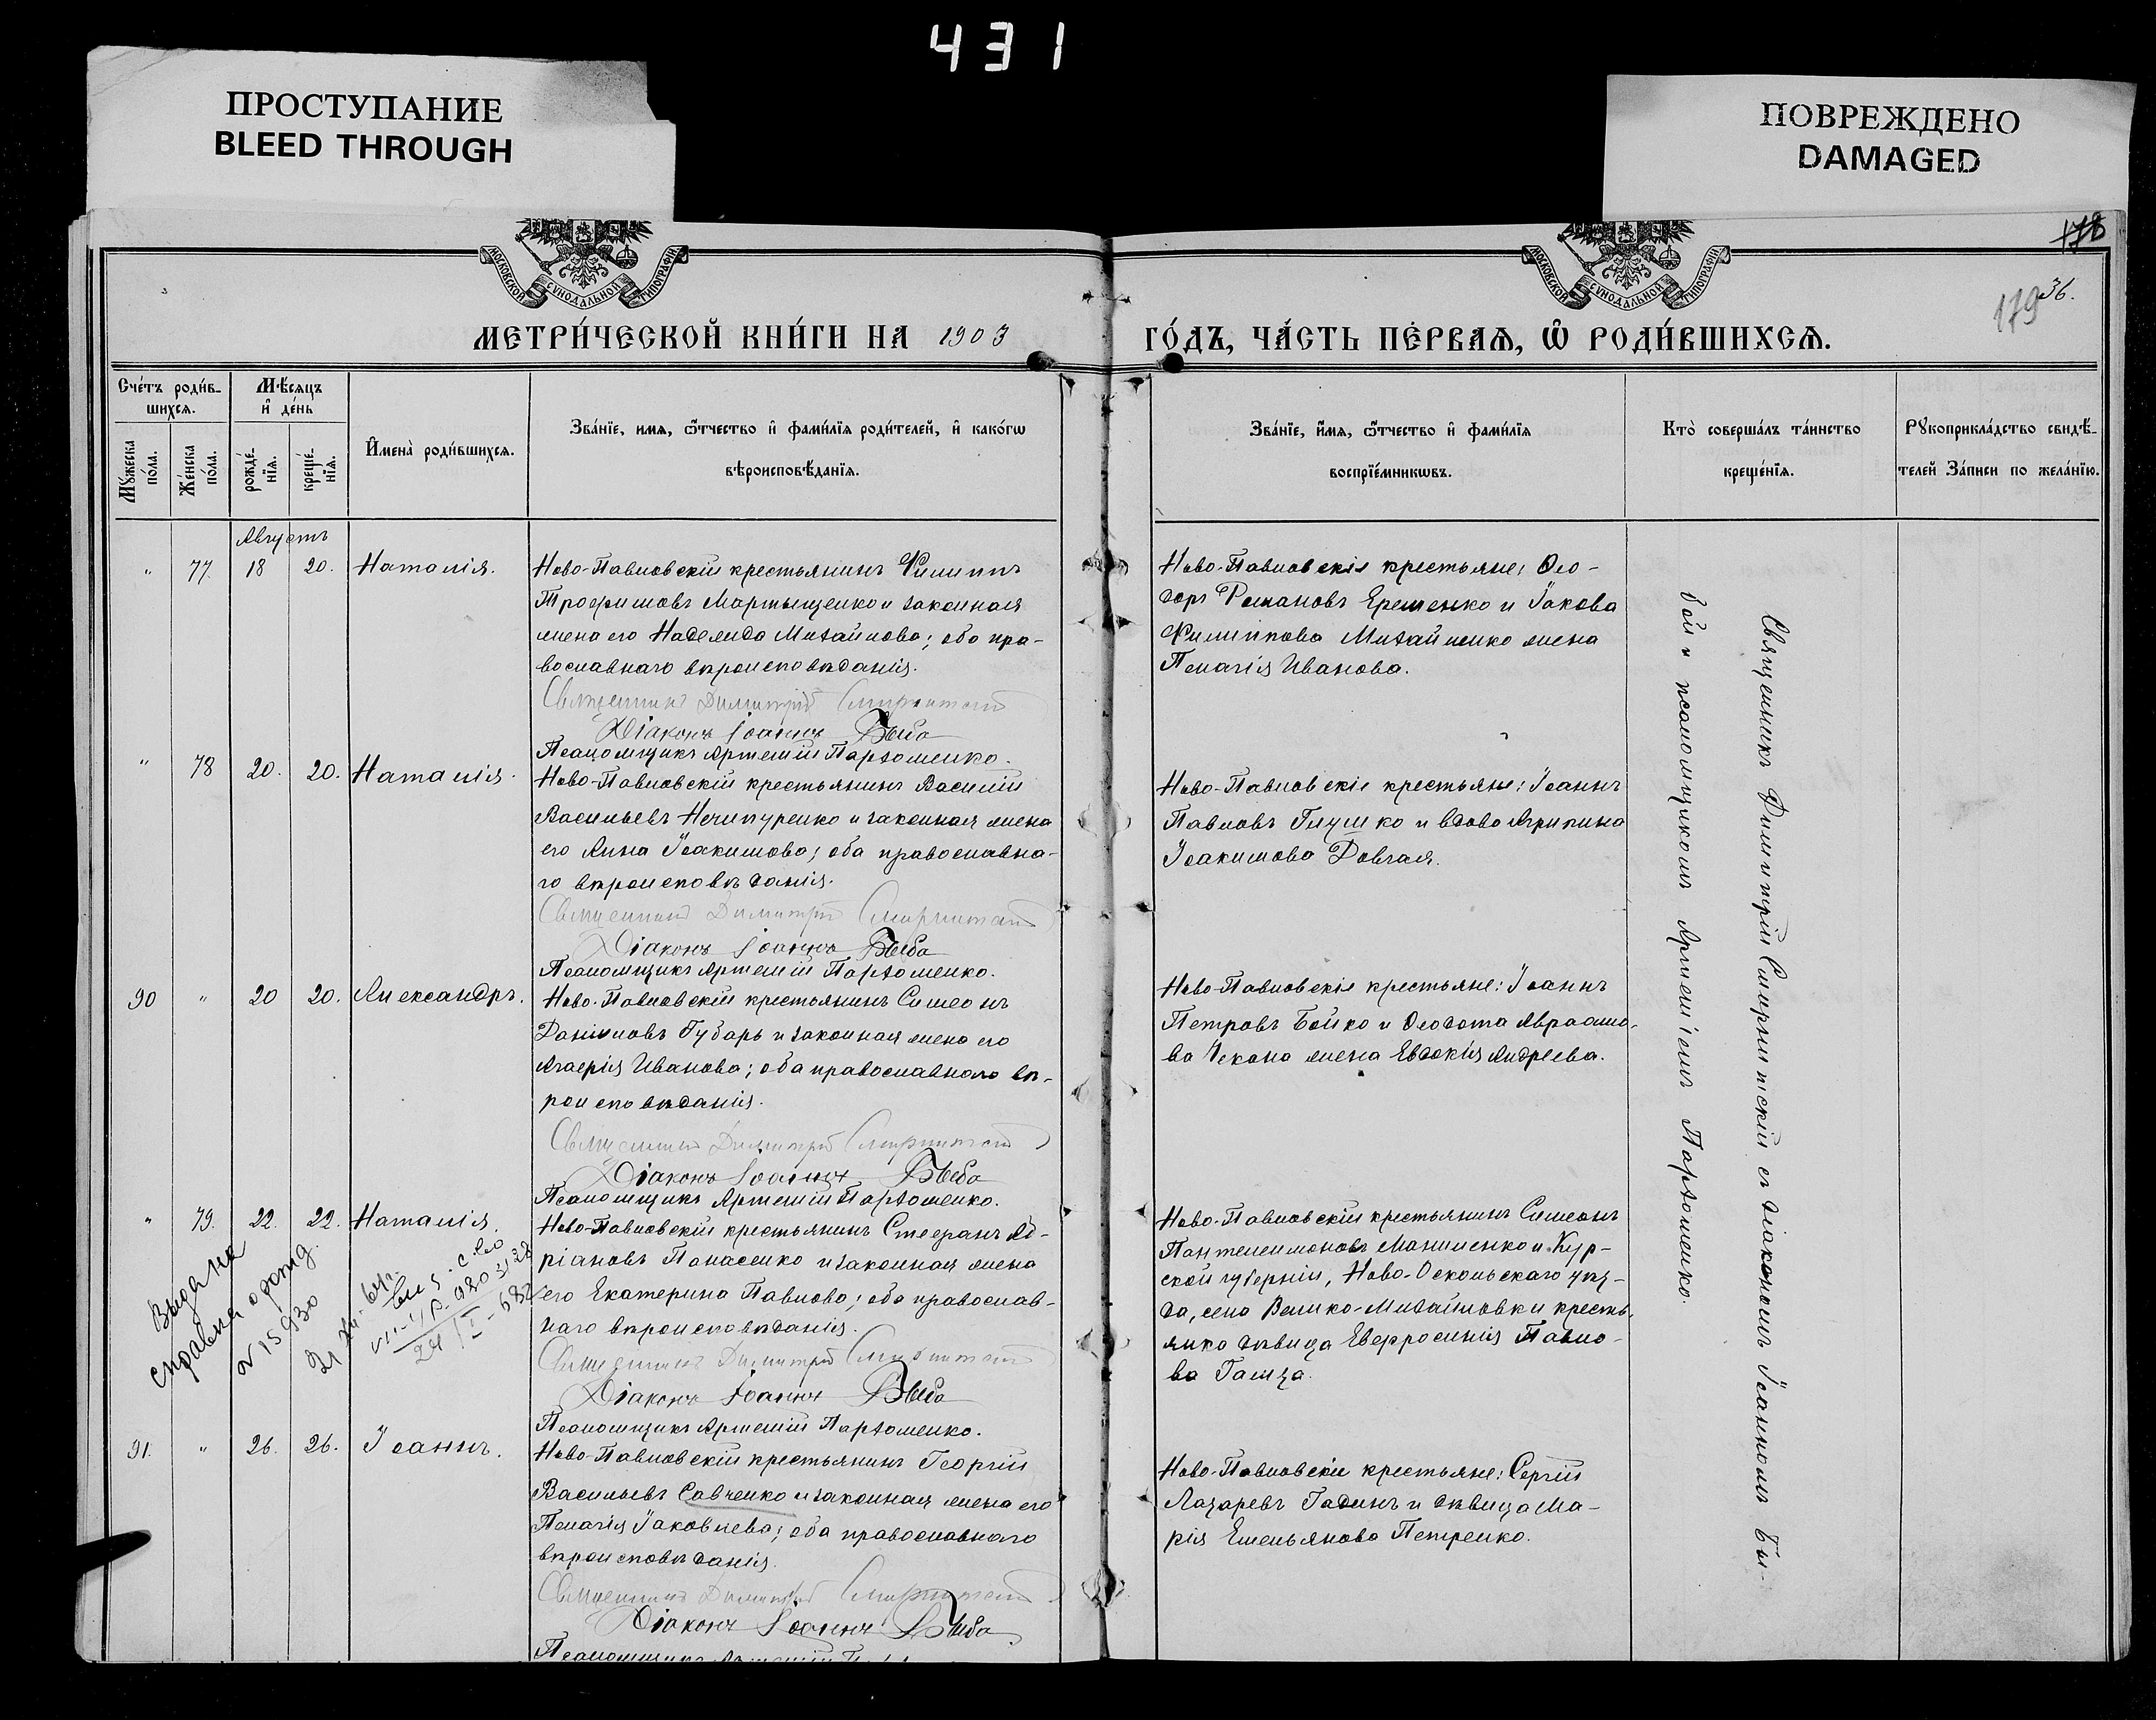 431
ПРОСТУПАНИЕ
BLEED THROUGH
ПОВРЕЖДЕНО
DAMAGED
МОСКОВСКОЙ СѴНОДАЛЬНОЙ ТИПОГРАФІИ
МОСКОВСКОЙ СѴНОДАЛЬНОЙ ТИПОГРАФІИ
178
179
36.
МЕТРИ́ЧЕСКОЙ КНИ́ГИ НА 1903
ГО́ДЪ, ЧА́СТЬ ПЕ́РВАѦ, Ѡ҆ РОДИ́ВШИХСѦ.
Сче́тъ роди́в-
шихсѧ.
Мꙋжеска по́ла.
Же́нска по́ла.
Мѣ́сѧцъ
и҆ де́нь
рожде́-
нїѧ.
креще́-
нїѧ.
И҆мена̀ роди́вшихсѧ.
Зва́нїе, имѧ, ѻ҆́тчество и҆ фами́лїѧ роди́телей, и҆ како́гѡ
вѣроисповѣ́данїѧ.
Зва́нїе, и҆́мѧ, ѻ҆́тчество и҆ фами́лїѧ
воспрїе́мникѡвъ.
Кто̀ соверша́лъ та́инство
креще́нїѧ.
Рꙋкоприкла́дство свидѣ́-
телей За́писи по жела́нїю.
Августъ
" 77. 18 20. Наталія.
Ново-Павловскій крестьянинъ Филиппъ
Трофимовъ Мартыщенко и законная
жена его Надежда Михайлова; оба пра-
вославнаго вѣроисповѣданія.
Священникъ Димитрій
Діаконъ Іоаннъ Быба
Псаломщикъ Артемій Пархоменко.
Ново-Павловскіе крестьяне: Ѳео-
доръ Романовъ Ерешенко и Іакова
Филиппова Михайленко жена
Пелагія Иванова.
" 78 20. 20. Наталія.
Ново-Павловскій крестьянинъ Василій
Васильевъ Нечипуренко и законная жена
его Анна Іоакимова; оба православна-
го вѣроисповѣданія.
Священникъ Димитрій
Діаконъ Іоаннъ Быба
Псаломщикъ Артемій Пархоменко.
Ново-Павловскіе крестьяне: Іоаннъ
Павловъ Глушко и вдова Агрипина
Іоакимова Довгая.
90 " 20 20. Александръ.
Ново-Павловскій крестьянинъ Симеонъ
Даніиловъ Губарь и законная жена его
Агафія Иванова; оба православнаго вѣ-
роисповѣданія.
Священникъ Димитрій
Діаконъ Іоаннъ Быба
Псаломщикъ Артемій Пархоменко.
Ново-Павловскіе крестьяне: Іоаннъ
Петровъ Бойко и Ѳеодота Авраамо-
ва Чекана жена Евдокія Андреева.
" 79. 22. 22. Наталія.
Ново-Павловскій крестьянинъ Стефанъ Ад-
ріановъ Панасенко и законная жена
его Екатерина Павлова; оба православ-
наго вѣроисповѣданія.
Священникъ Димитрій
Діаконъ Іоаннъ Быба
Псаломщикъ Артемій Пархоменко.
Ново-Павловскій крестьянинъ Симеонъ
Пантелеимоновъ Маниленко и Кур-
ской губерніи, Ново-Оскольскаго уѣз-
да, села Велико-Михайловки кресть-
янка дѣвица Евфросинія Павло-
ва
Выдана
справка о рожд.
91. " 26. 26. Іоаннъ.
Ново-Павловскій крестьянинъ Георгій
Васильевъ Савченко и законная жена его
Пелагія Іаковлева; оба православнаго
вѣроисповѣданія.
Священникъ Димитрій
Діаконъ Іоаннъ Быба
Ново-Павловскіе крестьяне: Сергій
Лазаревъ Гадинъ и дѣвица Ма-
рія Емельянова Петренко.
Священникъ Димитрій Смирнитскій съ діакономъ Іоанномъ Бы-
бой и псаломщикомъ Артеміемъ Пархоменко.